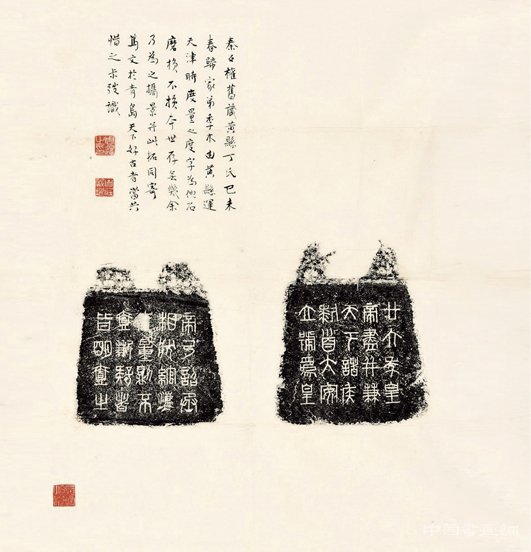 秦石權舊藏黄縣丁氏己未
春歸家弟季木由黄縣運
天津時度量之度字為他石
磨損不損今世存無幾余
乃為之攝景并此拓同寄
文於青島天下好古者當共
惜之尗弢識
廿六年皇
帝盡并兼
天下諸侯
黔首大安
立號爲皇
帝乃詔丞
相狀綰灋
量則不
壹歉疑者
皆明壹之